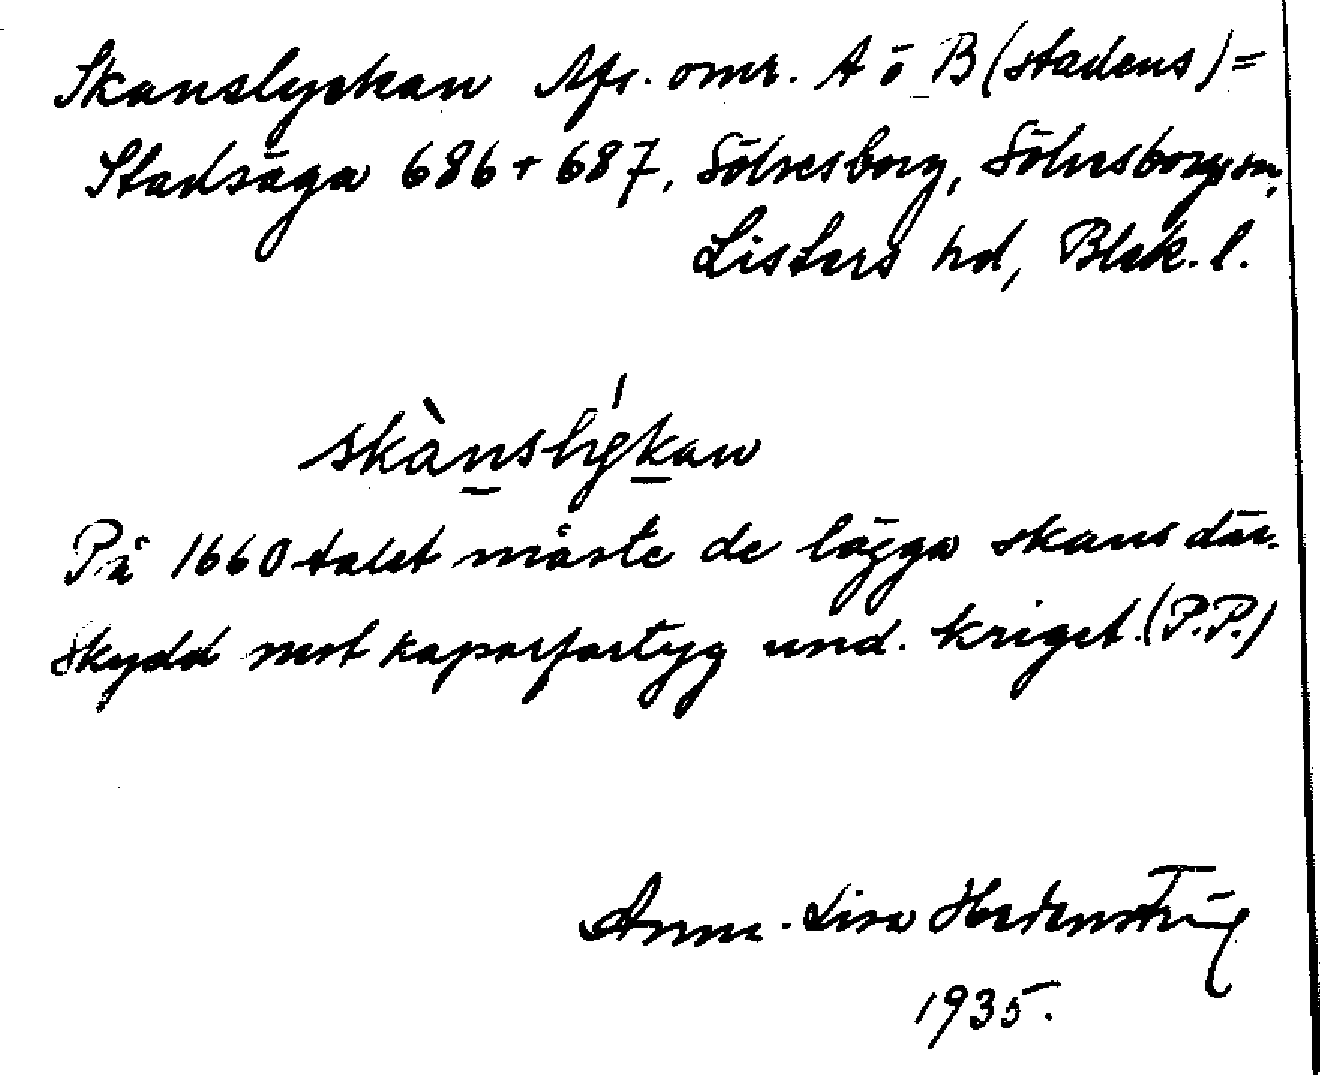 Skanslyckan Afs. omr. A ö B (stadens) =
Stadsäga 686 + 687, Sölvesborg, Sölvesborgs sn,
Listers hd, Blek. l.
skànslýkan
På 1660 talet måste de lägga skans där.
Skydd mot kaparfartyg und. kriget. (P.P.)
Anna-Lisa Hedenström
1935.